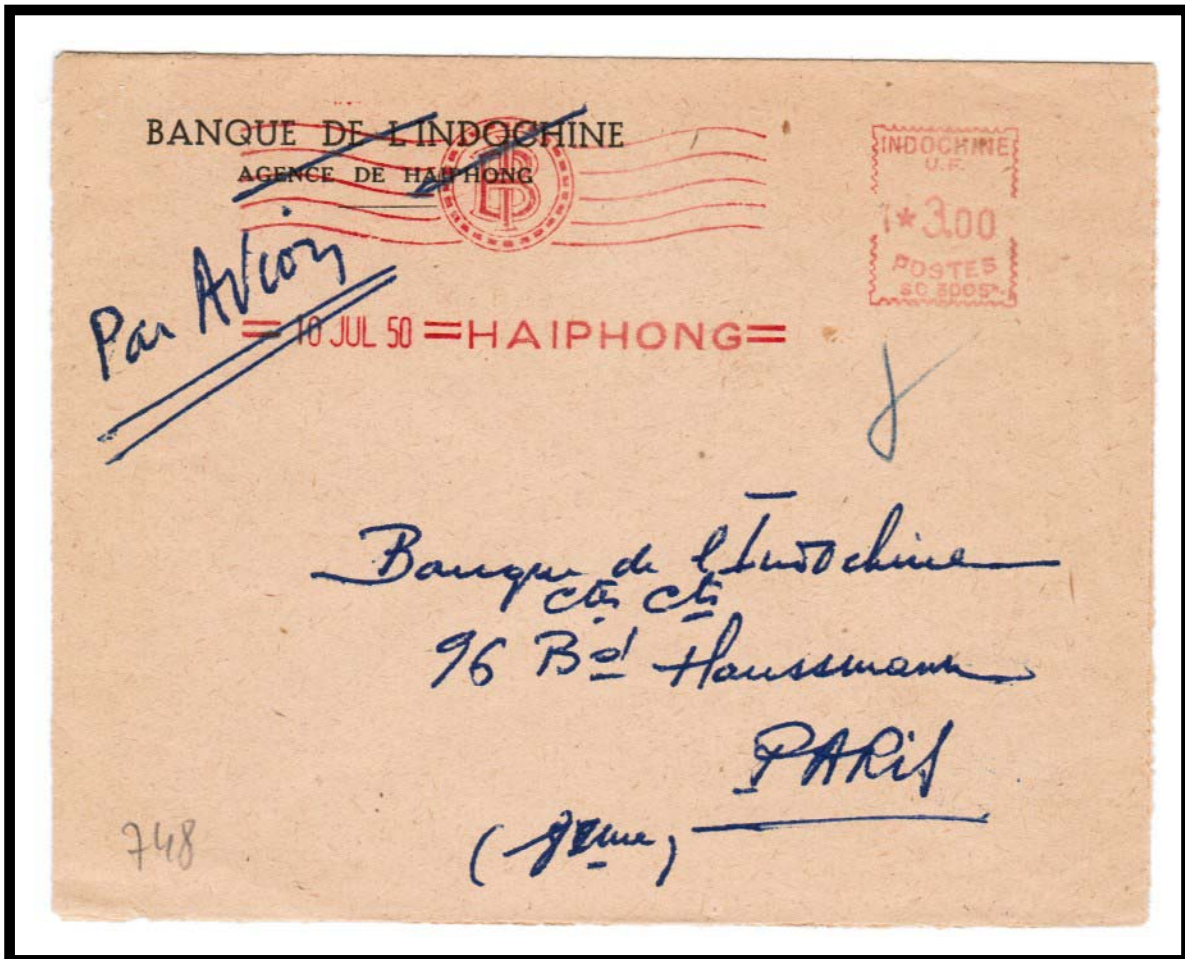 BANQUE DE L'INDOCHINE
AGENCE DE HAIPHONG
INDOCHINE
U.F.
*3.00
POSTES
Par Avion
= 10 JUL 50 = HAIPHONG =
Banque de l'Indochine
96 Bd Haussmann
PARIS
(8ème)
748